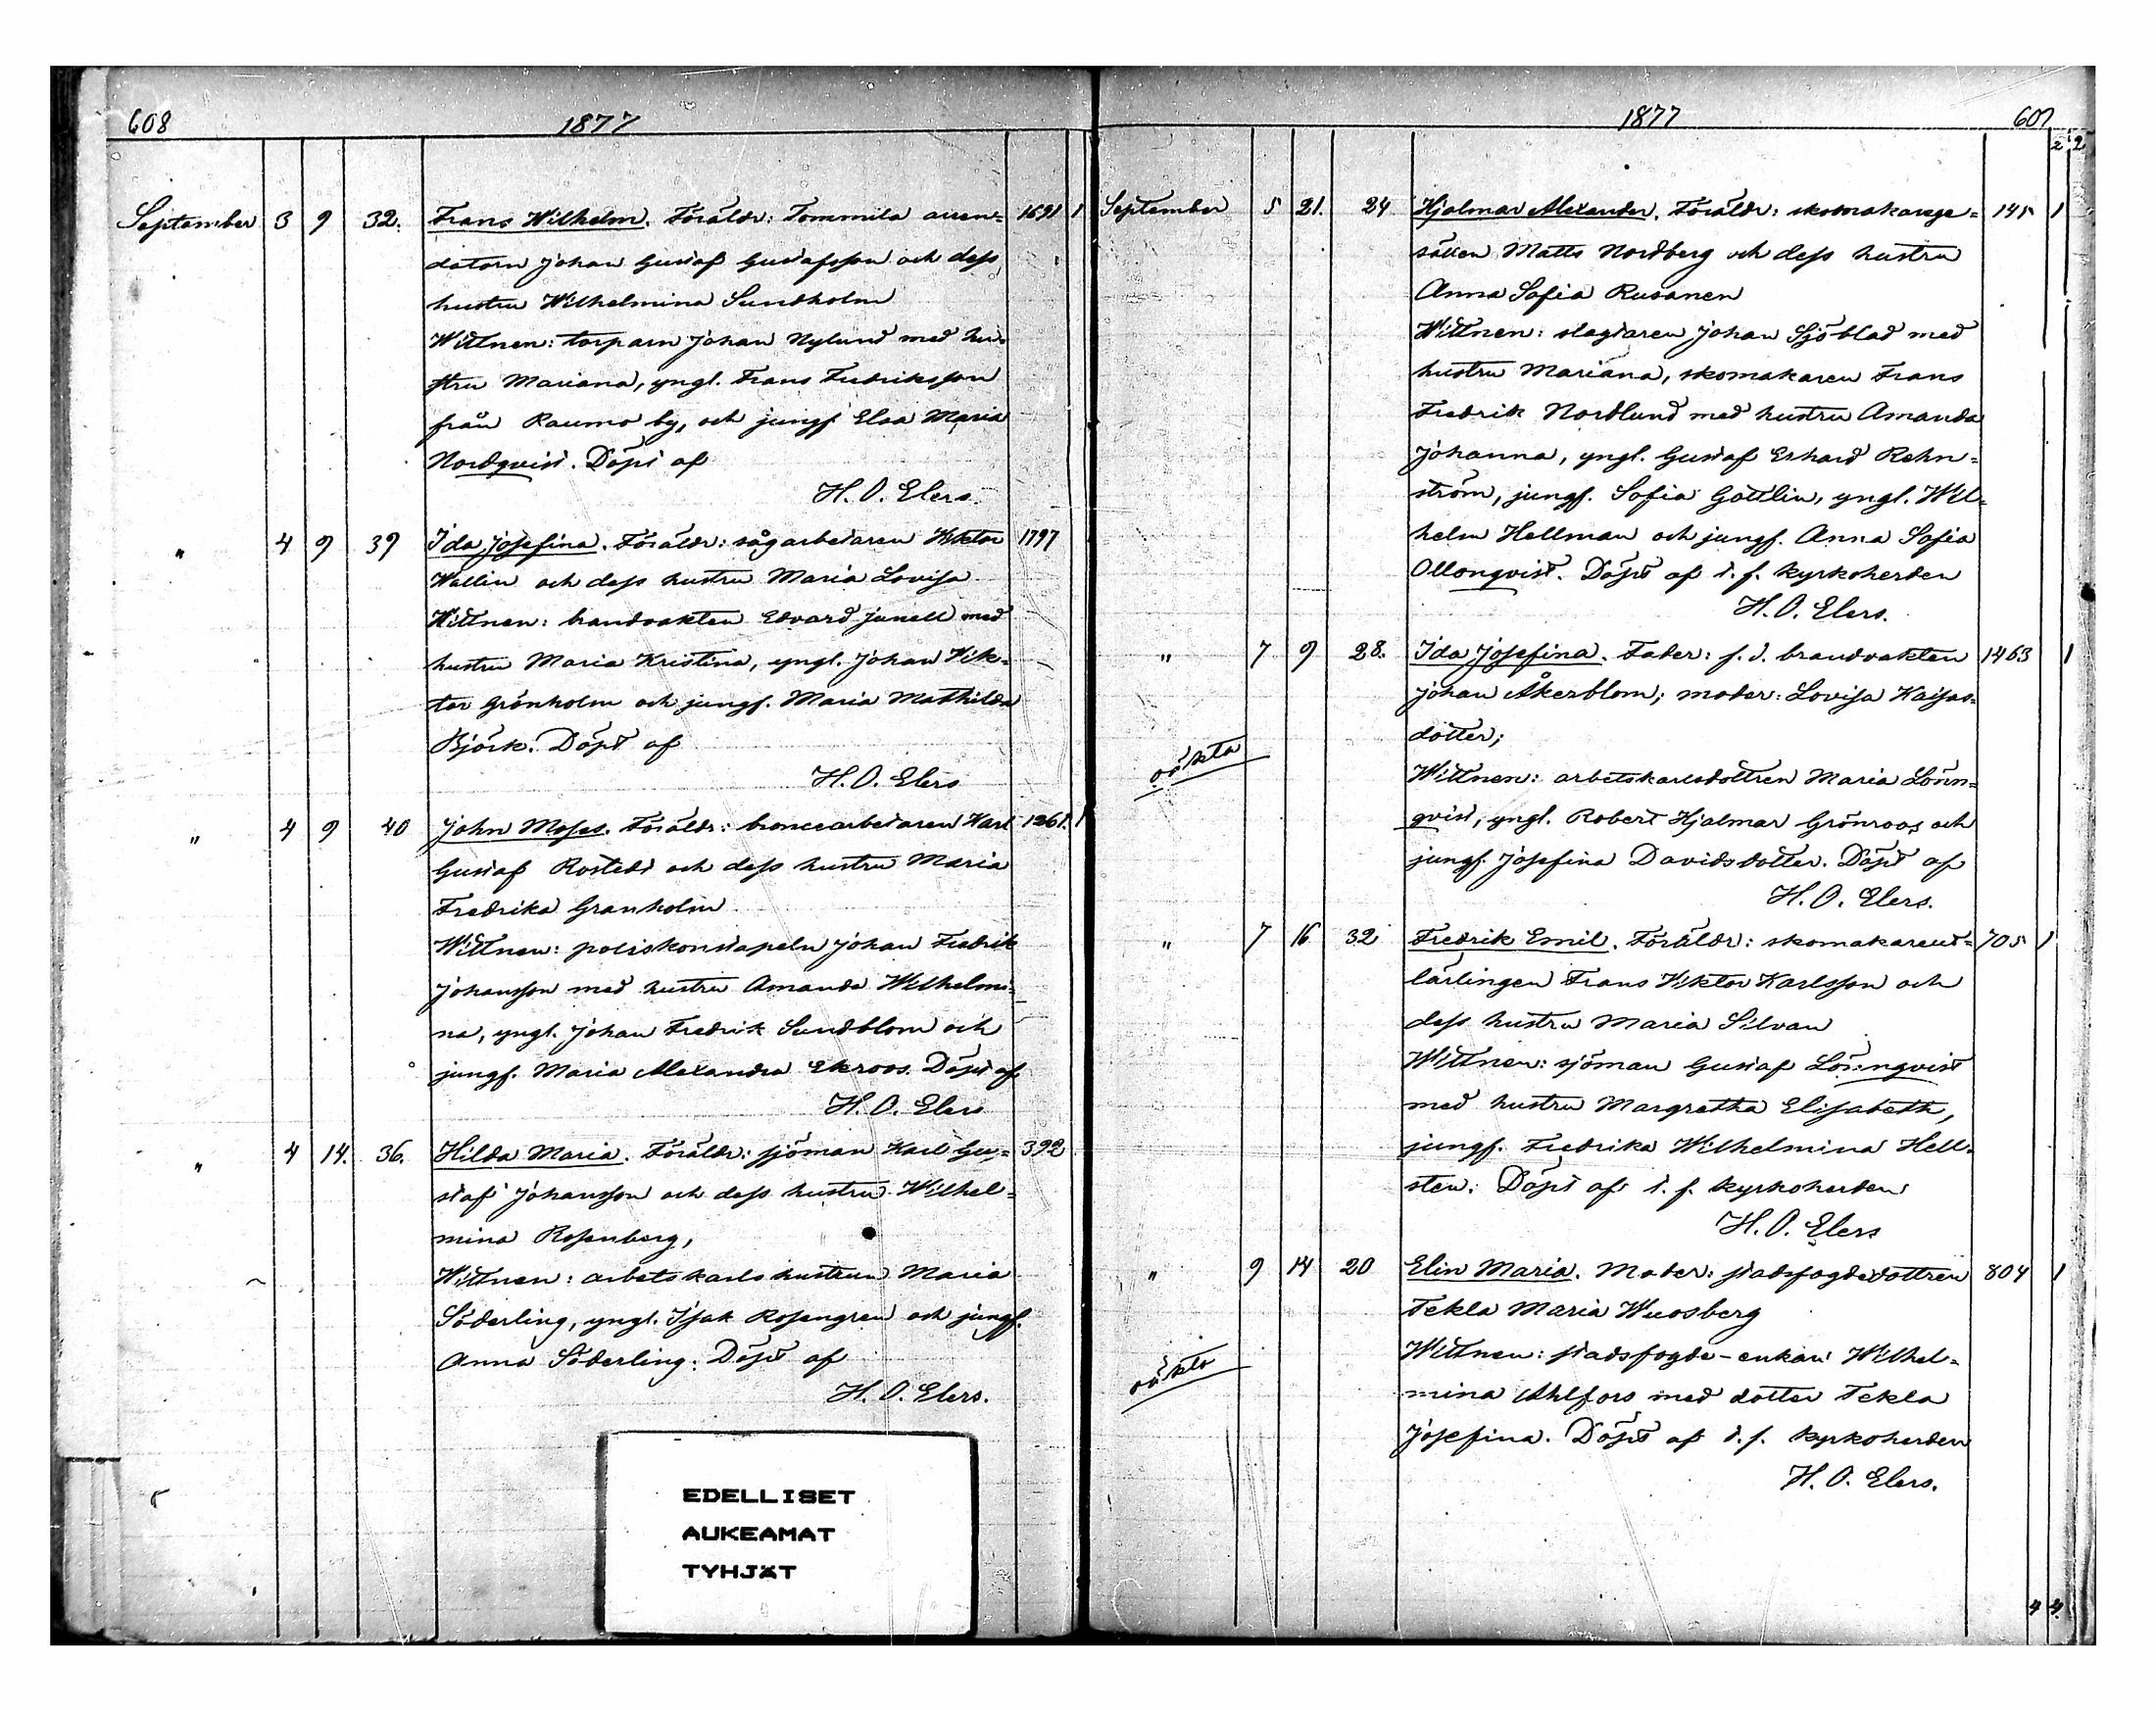 608 1877
September 3 9 32. Frans Wilhelm. Föräldr: Tommila arren= 1691 1
datorn Johan Gustaf Gustafsson och dess
hustru Wilhelmina Sundholm
Wittnen: torparn Johan Nylund med hu=
stru Mariana, yngl. Frans Fredriksson
från Raumo by, och jungf Elsa Maria
Nordqvist. Döpt af
H. O. Elers.
" 4 9 39 Ida Josefina. Föräldr: sågarbetaren Viktor 1797
Wallin och dess hustru Maria Lovisa
Wittnen: brandvakten Edvard Junell med
hustru Maria Kristina, yngl. Johan Vik=
tor Grönholm och jungf. Maria Mathilda
Björk. Döpt af
H. O. Elers
" 4 9 40 John Moses. Föräldr: broncearbetaren Karl 1261. 1
Gustaf Rostedt och dess hustru Maria
Fredrika Granholm
Wittnen: poliskonstapeln Johan Fredrik
Johansson med hustru Amanda Wilhelmi=
na, yngl. Johan Fredrik Sundblom och
jungf. Maria Alexandra Ekroos. Döpt af
H. O. Elers
" 4 14. 36. Hilda Maria. Föräldr: sjöman Karl Gu= 392
staf Johansson och dess hustru Wilhel=
mina Rosenberg,
Wittnen: arbetskarlshustrun Maria
Söderling, yngl. Isak Rosengren och jungf.
Anna Söderling. Döpt af
H. O. Elers.
EDELLISET
AUKEAMAT
TYHJÄT
1877 609
2 2
September 5 21. 24 Hjalmar Alexander. Föräldr: skomakarege= 145 1
sällen Matts Nordberg och dess hustru
Anna Sofia Rusanen
Wittnen: slagtaren Johan Sjöblad med
hustru Mariana, skomakaren Frans
Fredrik Nordlund med hustru Amanda
Johanna, yngl. Gustaf Erhard Rehn=
ström, jungf. Sofia Gottlin, yngl. Wil=
helm Hellman och jungf. Anna Sofia
Ollonqvist. Döpt af t. f. kyrkoherden
H. O. Elers.
" 7 9 28. Ida Josefina. Fader: f. d. brandvakten 1463 1
Johan Åkerblom; moder: Lovisa Kaisas=
dotter;
oäkta
Wittnen: arbetskarlsdottren Maria Lönn=
qvist, yngl. Robert Hjalmar Grönroos och
jungf. Josefina Davidsdotter. Döpt af
H. O. Elers.
" 7 16 32 Fredrik Emil. Föräldr: skomakareut= 705 1
lärlingen Frans Viktor Karlsson och
dess hustru Maria Silvan
Wittnen: sjöman Gustaf Lönnqvist
med hustru Margretha Elisabeth,
jungf. Fredrika Wilhelmina Hell=
sten. Döpt af t. f. kyrkoherden
H. O. Elers
" 9 14 20 Elin Maria. Moder: stadsfogdedottren 804 1
Tekla Maria Wuosberg
oäkta
Wittnen: stadsfogde-enkan Wilhel=
mina Ahlfors med dotter Tekla
Josefina. Döpt af t. f. kyrkoherden
H. O. Elers.
4 4.